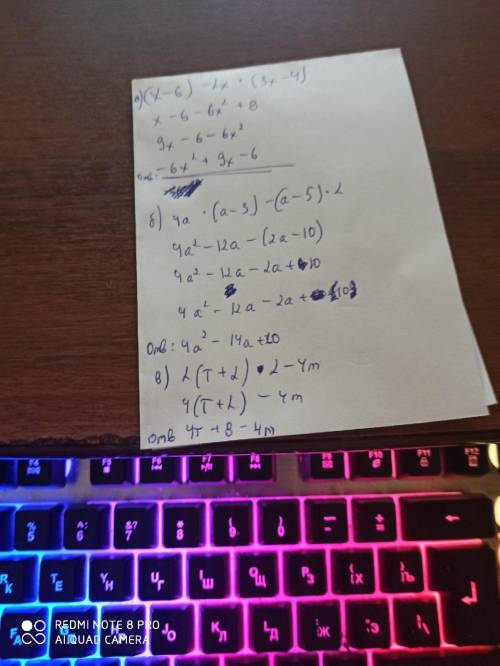 а) (x-6) - 2x · (3x-4)
x - 6 - 6x² + 8
9x - 6 - 6x²
Отв: -6x² + 9x - 6
б) 4a · (a-3) - (a-5) · 2
4a² - 12a - (2a-10)
4a² - 12a - 2a + 10
4a² - 12a - 2a + (10)
Отв: 4a² - 14a + 10
в) 2(т+2) · 2 - 4m
4(т+2) - 4m
Отв 4т + 8 - 4m
F4 F5 F6 F7 F8 F9 F10 F11 F12
% 5 ^: 6 &? 7 * 8 ( 9 ) 0 - + =
R К T Е Y Н U Г I Ш O Щ P З Х Ъ
F А J О K Л L Д Ж Э
REDMI NOTE 8 PRO
AI QUAD CAMERA